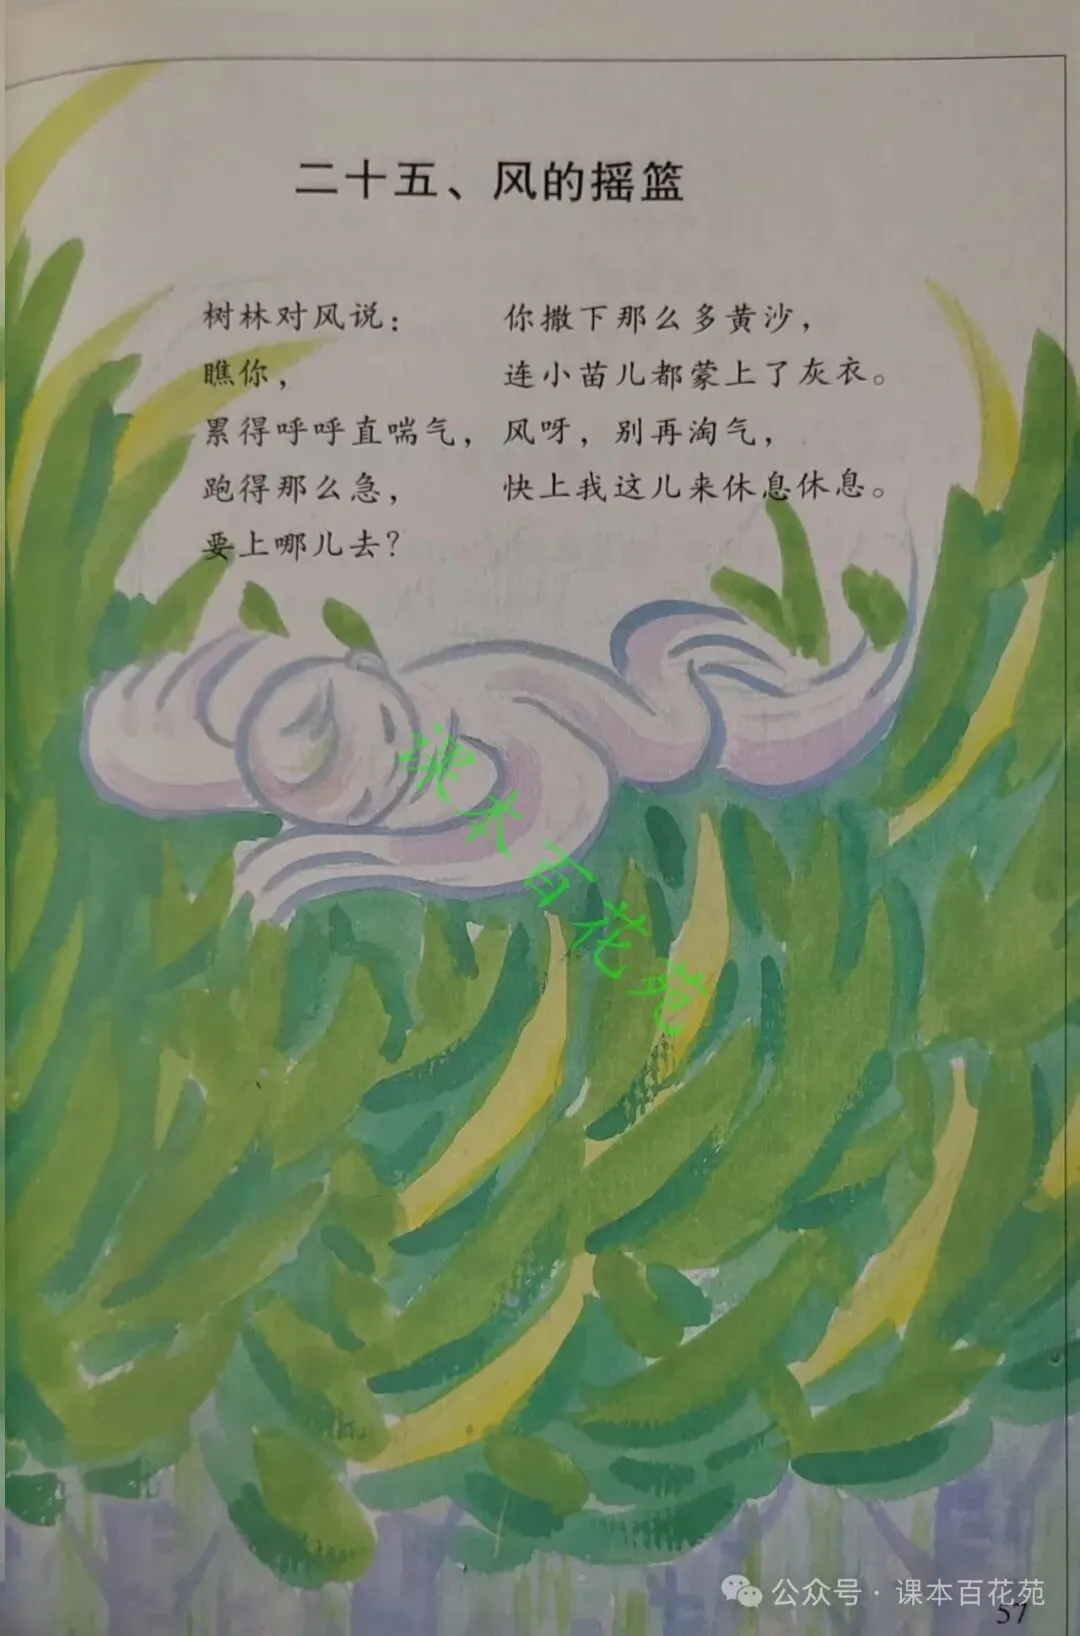 二十五、风的摇篮
树林对风说：
瞧你，
累得呼呼直喘气，
跑得那么急，
要上哪儿去？
你撒下那么多黄沙，
连小苗儿都蒙上了灰衣。
风呀，别再淘气，
快上我这儿来休息休息。
课本百花苑
公众号·课本百花苑
57